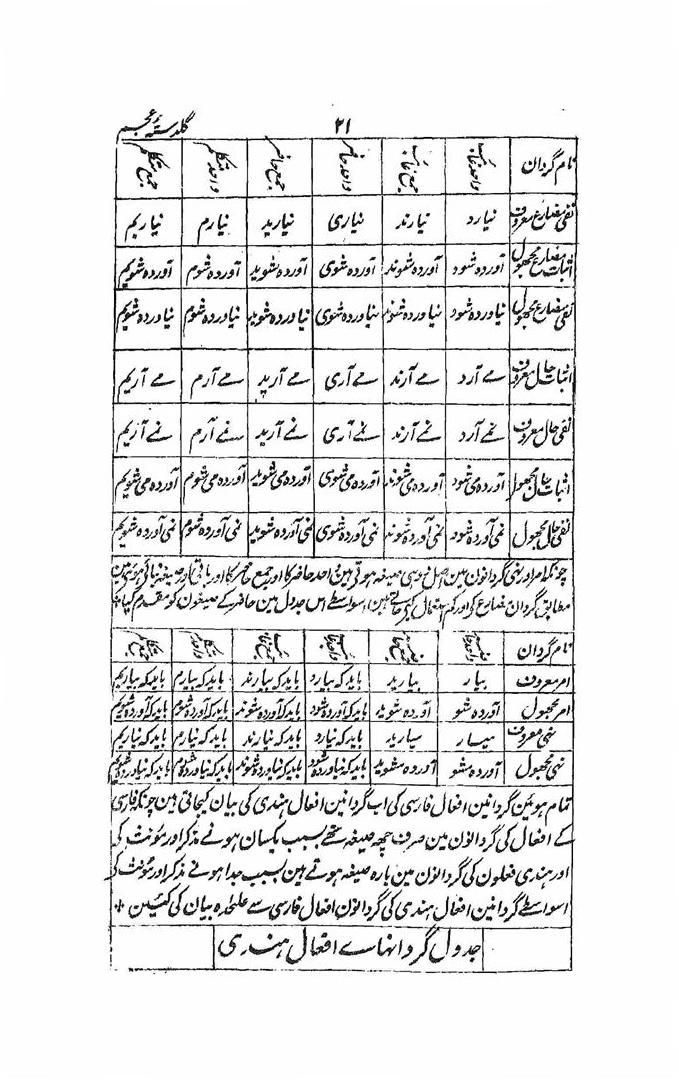 گلدستۂ عجم ۲۱
نام گردان واحد غائب جمع غائب واحد حاضر جمع حاضر واحد متکلم جمع متکلم
نفی مضارع معروف نیارد نیارند نیاری نیارید نیارم نیاریم
اثبات مضارع مجہول آوردہ شود آوردہ شوند آوردہ شوی آوردہ شوید آوردہ شوم آوردہ شویم
نفی مضارع مجہول نیاوردہ شود نیاوردہ شوند نیاوردہ شوی نیاوردہ شوید نیاوردہ شوم نیاوردہ شویم
اثبات حال معروف مے آرد مے آرند مے آری مے آرید مے آرم مے آریم
نفی حال معروف نمے آرد نمے آرند نمے آری نمے آرید نمے آرم نمے آریم
اثبات حال مجہول آوردہ می شود آوردہ می شوند آوردہ می شوی آوردہ می شوید آوردہ می شوم آوردہ می شویم
نفی حال مجہول نمی آوردہ شود نمی آوردہ شوند نمی آوردہ شوی نمی آوردہ شوید نمی آوردہ شوم نمی آوردہ شویم
چونکہ امر اور نہی گردانون مین اصل دوہی صیغہ ہوتی ہین واحد حاضر کا اور جمع حاضر کا اور باقی اور صیغہ بنائی ہوئی ہین
مطابق گردان مضارع کی اور کم استعمال کئی جاتے ہین اسواسطے اس جدول مین حاضر کے صیغون کو مقدم کیا ٭
نام گردان واحد حاضر جمع حاضر واحد غائب جمع غائب واحد متکلم جمع متکلم
امر معروف بیار بیارید باید کہ بیارد باید کہ بیارند باید کہ بیارم باید کہ بیاریم
امر مجہول آوردہ شو آوردہ شوید باید کہ آوردہ شود باید کہ آوردہ شوند باید کہ آوردہ شوم باید کہ آوردہ شویم
نہی معروف میار میارید باید کہ نیارد باید کہ نیارند باید کہ نیارم باید کہ نیاریم
نہی مجہول آوردہ مشو آوردہ مشوید باید کہ نیاوردہ شود باید کہ نیاوردہ شوند باید کہ نیاوردہ شوم باید کہ نیاوردہ شویم
تمام ہوئین گردانین افعال فارسی کی اب گردانین افعال ہندی کی بیان کیجاتی ہین چونکہ فارسی
کے افعال کی گردانون مین صرف چھہ صیغہ تھے بسبب یکسان ہونے مذکر اور مؤنث کی
اور ہندی فعلون کی گردانون مین بارہ صیغہ ہوتے ہین بسبب جدا ہونے مذکر اور مؤنث کے
اسواسطے گردانین افعال ہندی کی گردانون افعال فارسی سے علٰحدہ بیان کی گئین ٭
جدول گردانہاے افعال ہندی